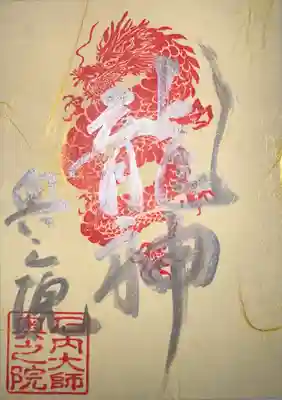 龍神
奥之院
大師
奥之院